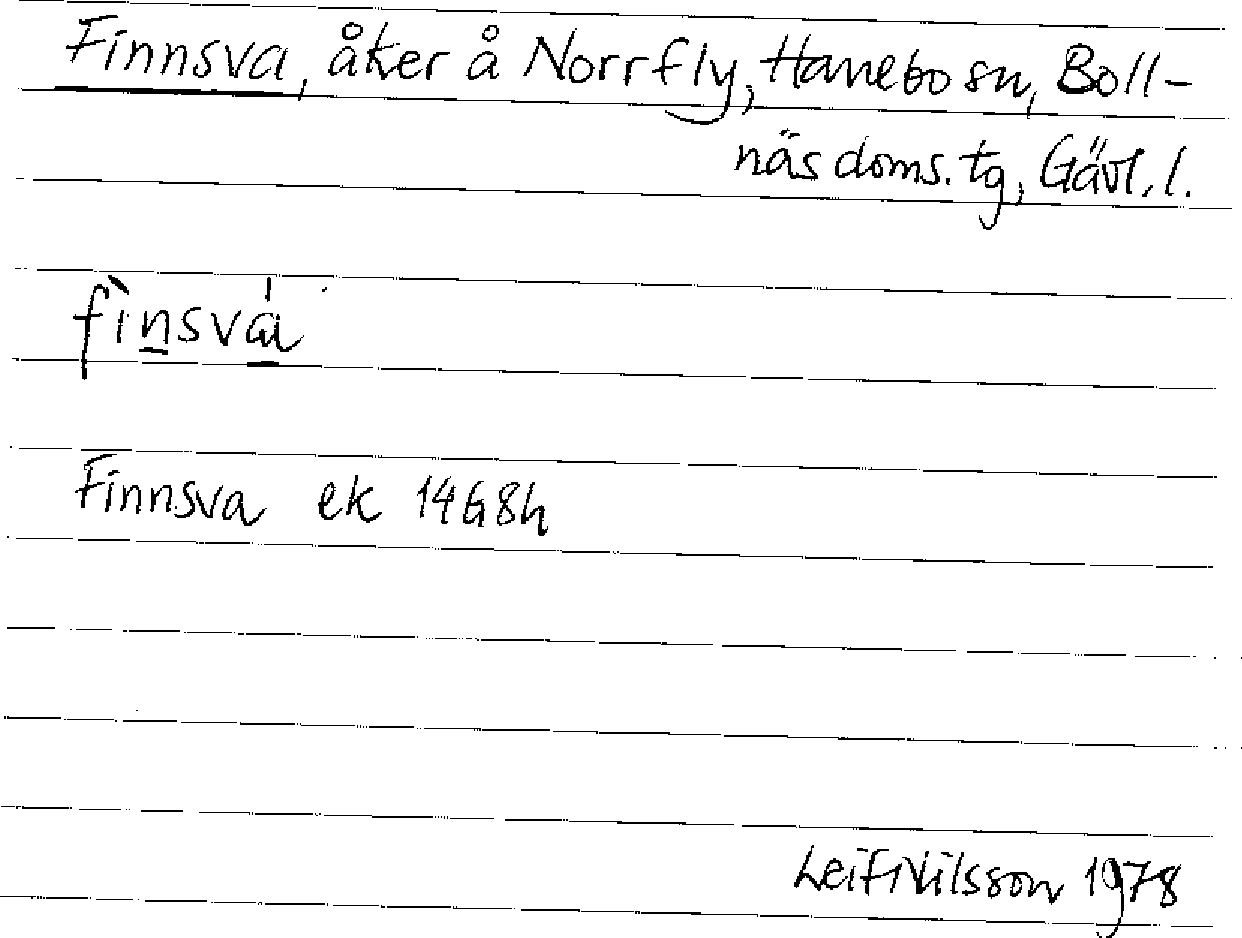 Finnsva, åker å Norrfly, Hanebo sn, Boll-
näs doms. tg, Gävl. l.
fìn̲svá̲
Finnsva ek 14G8h
Leif Nilsson 1978